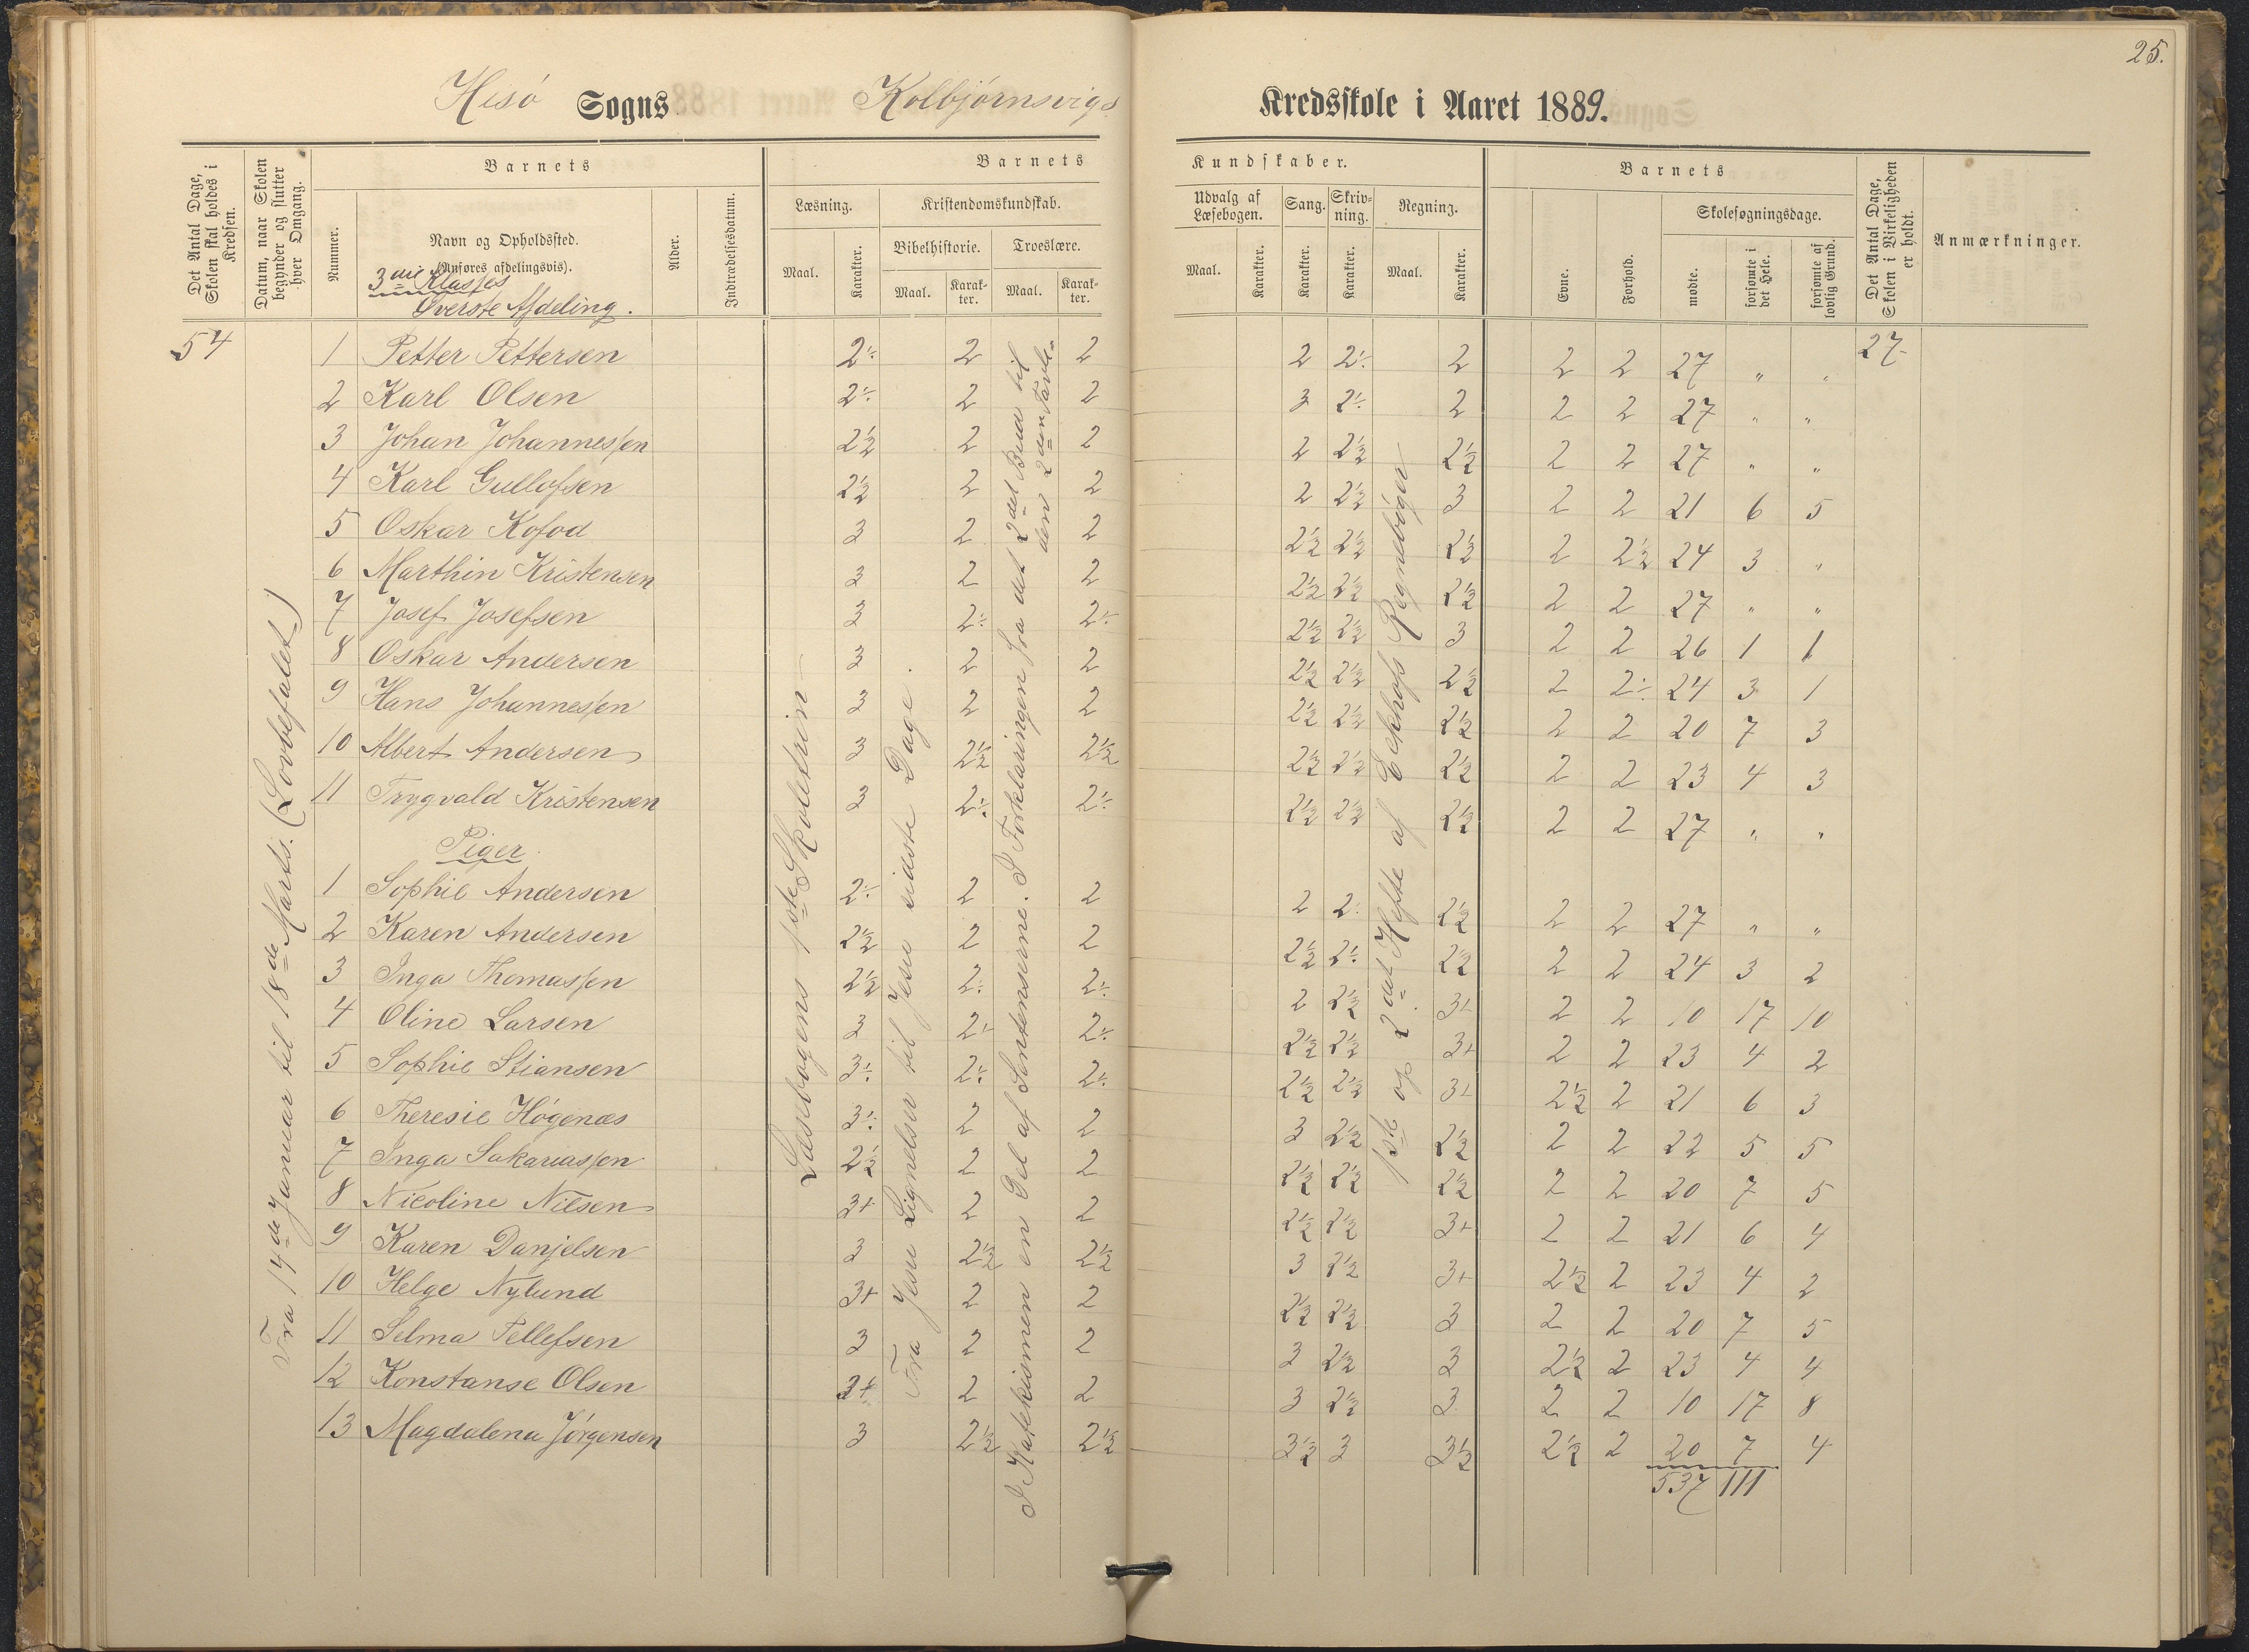 25.
Hisö Sogns Kolbjörnsvigs Kredsskole i Aaret 1889.
Det Antal Dage, Skolen skal holdes i Kredsen.
Datum, naar Skolen begynder og slutter hver Omgang.
Barnets
Nummer.
Navn og Opholdssted.
(Anføres afdelingsvis).
3die Klasses
Øverste Afdeling.
Alder.
Indtrædelsesdatum.
Barnets Kundskaber.
Læsning.
Maal. Karakter.
Kristendomskundskab.
Bibelhistorie. Troeslære.
Maal. Karakter. Maal. Karakter.
Udvalg af Læsebogen.
Maal. Karakter.
Sang. Karakter.
Skrivning. Karakter.
Regning.
Maal. Karakter.
Barnets
Evne. Forhold.
Skolesøgningsdage.
mødte. forsømte i det Hele. forsømte af lovlig Grund.
Det Antal Dage, Skolen i Virkeligheden er holdt.
Anmærkninger.
54
Fra 14de Januar til 18de Marts. (Lovbefalet)
Læsebogens 1ste Skoletrin
Fra Jesu Lignelser til Jesu sidste Dage.
I Katekismen en Del af Sentenserne. I Forklaringen fra det 2det Bud til den 2den Tavle.
1ste og 2det Hefte af Eckhofs Regnebøger
1 Petter Pettersen 2÷ 2 2 2 2÷ 2 2 2 27 " " 27
2 Karl Olsen 2÷ 2 2 3 2÷ 2 2 2 27 " "
3 Johan Johannessen 2½ 2 2 2 2½ 2½ 2 2 27 " "
4 Karl Gullofsen 2½ 2 2 2 2½ 3 2 2 21 6 5
5 Oskar Kofod 3 2 2 2½ 2½ 2½ 2 2½ 24 3 "
6 Marthin Kristensen 3 2 2 2½ 2½ 2½ 2 2 27 " "
7 Josef Josefsen 3 2÷ 2÷ 2½ 2½ 3 2 2 26 1 1
8 Oskar Andersen 3 2 2 2½ 2½ 2½ 2 2÷ 24 3 1
9 Hans Johannessen 3 2 2 2½ 2½ 2½ 2 2 20 7 3
10 Albert Andersen 3 2½ 2½ 2½ 2½ 2½ 2 2 23 4 3
11 Trygvald Kristensen 3 2÷ 2÷ 2½ 2½ 2½ 2 2 27 " "
Piger
1 Sophie Andersen 2÷ 2 2 2 2÷ 2½ 2 2 27 " "
2 Karen Andersen 2½ 2 2 2½ 2÷ 2½ 2 2 24 3 2
3 Inga Thomassen 2½ 2÷ 2÷ 2 2½ 3+ 2 2 10 17 10
4 Oline Larsen 3 2÷ 2÷ 2½ 2½ 3+ 2 2 23 4 2
5 Sophie Stiansen 3÷ 2÷ 2÷ 2½ 2½ 3+ 2½ 2 21 6 3
6 Theresie Högenæs 3÷ 2 2 3 2½ 2½ 2 2 22 5 5
7 Inga Sakariassen 2½ 2 2 2½ 2½ 2½ 2 2 20 7 5
8 Nicoline Nilsen 3+ 2 2 2½ 2½ 3+ 2 2 21 6 4
9 Karen Danjelsen 3 2½ 2½ 3 2½ 3+ 2½ 2 23 4 2
10 Helge Nylund 3+ 2 2 2½ 2½ 3 2 2 20 7 5
11 Selma Tellefsen 3 2 2 3 2½ 3 2½ 2 23 4 4
12 Konstanse Olsen 3+ 2 2 3 2½ 3 2 2 10 17 8
13 Magdalena Jörgensen 3 2½ 2½ 3½ 3 3½ 2½ 2 20 7 4
537 111